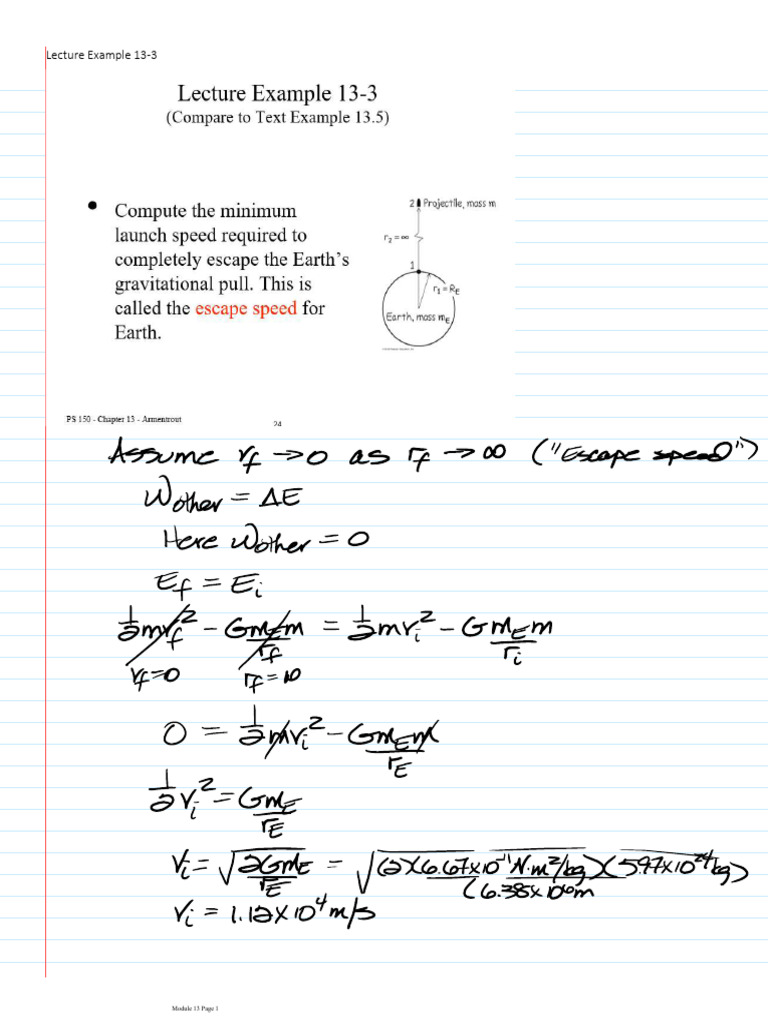 Lecture Example 13-3
Lecture Example 13-3
(Compare to Text Example 13.5)
• Compute the minimum
launch speed required to
completely escape the Earth's
gravitational pull. This is
called the escape speed for
Earth.
2 Projectile, mass m
r₂ = ∞
1
r₁ = R_E
Earth, mass m_E
PS 150 - Chapter 13 - Armentrout
24
Assume v_f → 0 as r_f → ∞ ("Escape speed")
W_other = ΔE
Here W_other = 0
E_f = E_i
½mv_f² - Gm_Em/r_f = ½mv_i² - Gm_Em/r_i
v_f=0 r_f=∞
0 = ½mv_i² - Gm_Em/r_E
½v_i² = Gm_E/r_E
v_i = √(2Gm_E/r_E) = √((2)(6.67x10⁻¹¹N·m²/kg)(5.97x10²⁴kg)/(6.38x10⁶m
v_i = 1.12x10⁴m/s
Module 13 Page 1